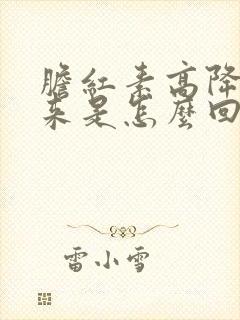 膽紅素高降
來是怎麼回
雷小雪